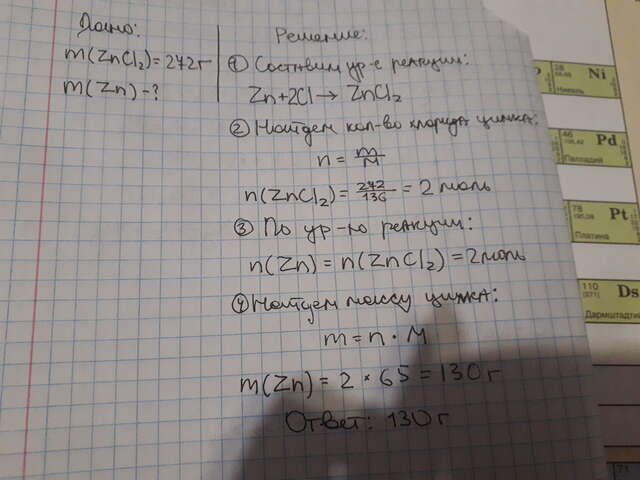 Дано:
m(ZnCl₂)=272г
m(Zn)-?
Решение:
① Составим ур-е реакции:
Zn+2Cl→ZnCl₂
② Найдем кол-во хлорида цинка:
n = m/M
n(ZnCl₂) = 272/136 = 2 моль
③ По ур-ю реакции:
n(Zn) = n(ZnCl₂) = 2моль
④ Найдем массу цинка:
m = n · M
m(Zn) = 2 * 65 = 130 г
Ответ: 130г
28
Ni
Никель
46
Pd
Палладий
78
Pt
Платина
110
Ds
Дармштадтий